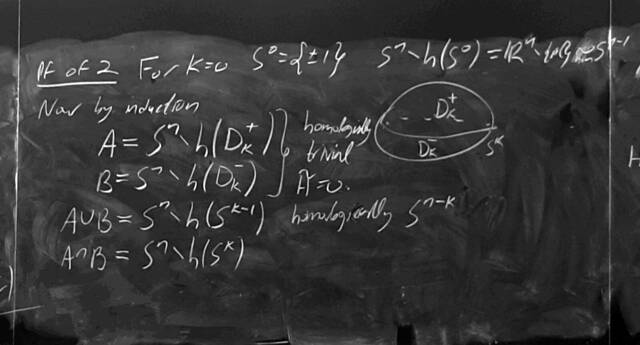 Pf of 2 For k=0 S⁰={±1} Sⁿ∖h(S⁰)=ℝⁿ∖{0}≃Sⁿ⁻¹
Now by induction
A = Sⁿ∖h(Dₖ⁺) } homologically
B = Sⁿ∖h(Dₖ⁻) trivial
H̃=0.
Dₖ⁺
Dₖ⁻ Sᵏ
A∪B = Sⁿ∖h(Sᵏ⁻¹) homologically Sⁿ⁻ᵏ
A∩B = Sⁿ∖h(Sᵏ)